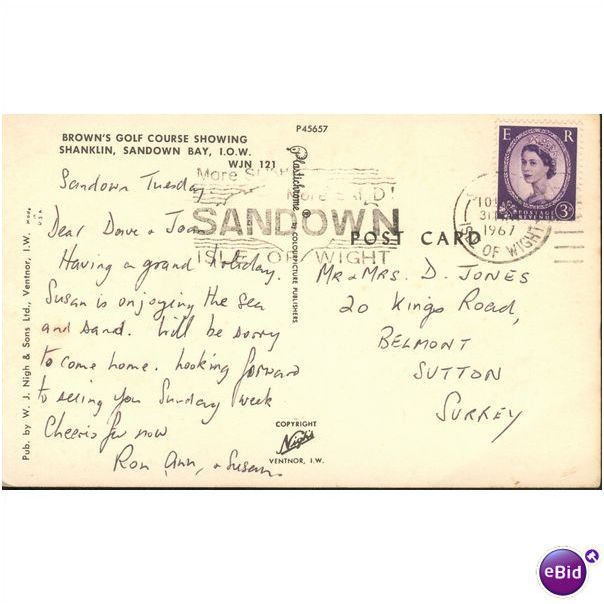 P45657
BROWN'S GOLF COURSE SHOWING
SHANKLIN, SANDOWN BAY, I.O.W.
WJN 121
More
SANDOWN
ISLE OF WIGHT
E R
POSTAGE
REVENUE
3D
1967
OF WIGHT
POST CARD
Plastichrome ® BY COLOURPICTURE PUBLISHERS
Pub. by W. J. Nigh & Sons Ltd., Ventnor, I.W.
Sandown Tuesday
Dear Dave & Joan
Having a grand holiday.
Susan is enjoying the sea
and sand. Will be sorry
to come home. Looking forward
to seeing you Sunday week
Cheerio for now
Ron, Ann, & Susan.
MR & MRS. D. JONES
20 Kings Road,
BELMONT
SUTTON
SURREY
COPYRIGHT
Nigh's
VENTNOR, I.W.
eBid